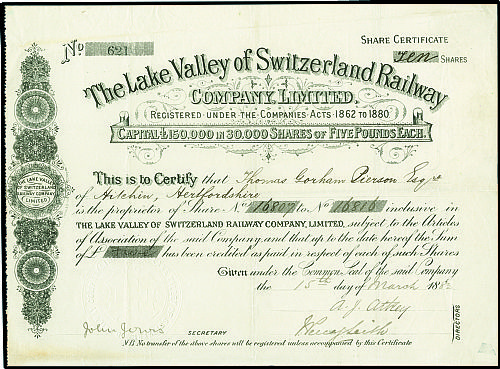 No 621
SHARE CERTIFICATE
Ten SHARES
The Lake Valley of Switzerland Railway
COMPANY, LIMITED.
REGISTERED UNDER THE COMPANIES ACTS 1862 TO 1880.
CAPITAL £150,000 IN 30,000 SHARES OF FIVE POUNDS EACH.
THE LAKE VALLEY
OF SWITZERLAND
RAILWAY COMPANY
(LIMITED)
This is to Certify that Thomas Gorham Pierson Esqre
of Hitchin, Hertfordshire
is the proprietor of Share No 16807 to No 16816 inclusive in
THE LAKE VALLEY OF SWITZERLAND RAILWAY COMPANY, LIMITED, subject to the Articles
of Association of the said Company, and that up to the date hereof the Sum
of £ has been credited as paid in respect of each of such Shares
Given under the Common Seal of the said Company
the 15th day of March 188
A. J. Athey
DIRECTORS
John Jervis SECRETARY
N.B. No transfer of the above shares will be registered unless accompanied by this Certificate